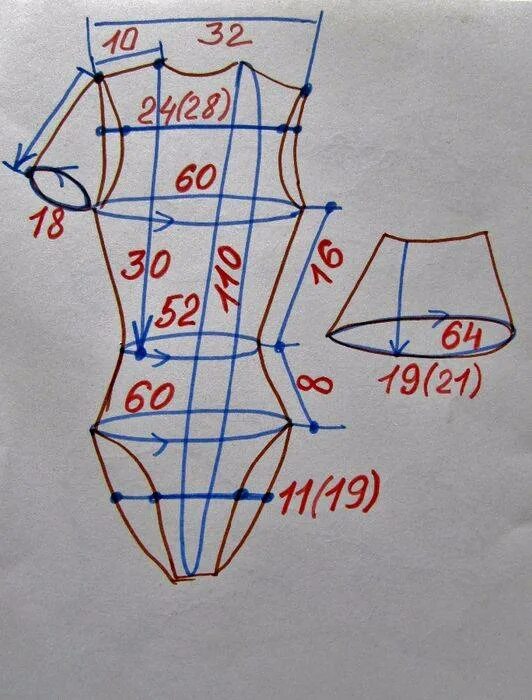 10
32
24(28)
60
18
30
110
16
52
64
19(21)
60
8
11(19)